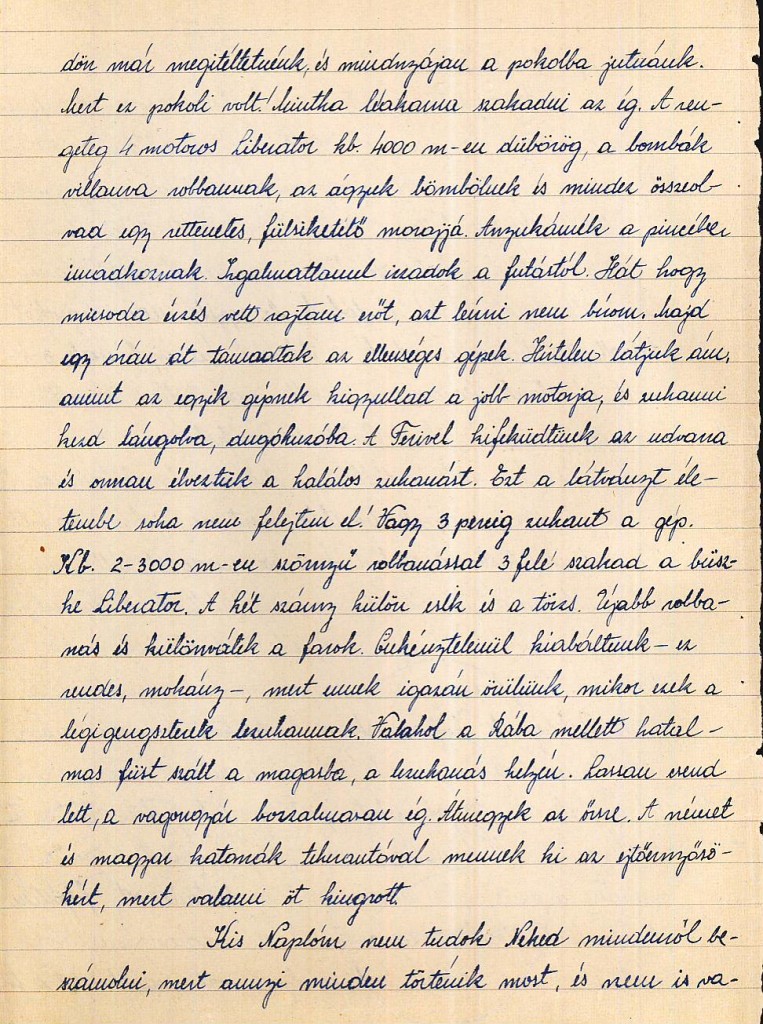 dön már megitéltetnénk, és mindnyájan a pokolba jutnánk.
Mert ez pokoli volt! Mintha leakarna szakadni az ég. A ren-
geteg 4 motoros Liberator kb. 4000 m-en dübörög, a bombák
villanva robbannak, az ágyuk bömbölnek és mindez összeol-
vad egy rettenetes, fülsiketitő morajjá. Anyukámék a pincében
imádkoznak. Irgalmatlanul izzadok a futástól. Hát hogy
micsoda érzés vett rajtam erőt, azt leirni nem birom. Majd
egy órán át támadtak az ellenséges gépek. Hirtelen látjuk ám,
amint az egyik gépnek kigyullad a jobb motorja, és zuhanni
kezd lángolva, dugóhuzóba. A Ferivel kifeküdtünk az udvarra
és onnan élveztük a halálos zuhanást. Ezt a látványt éle-
tembe soha nem felejtem el! Vagy 3 percig zuhant a gép.
Kb. 2-3000 m-en szörnyű robbanással 3 felé szakad a büsz-
ke Liberator. A két szárny külön esik és a törzs. Ujabb robba-
nás és különválik a farok. Önkénytelenül kiabáltunk – ez
rendes, mokány –, mert ennek igazán örülünk, mikor ezek a
légigengszterek lezuhannak. Valahol a Rába mellett hatal-
mas füst száll a magasba, a lezuhanás helyén. Lassan csend
lett, a vagongyár borzalmasan ég. Átmegyek az őrsre. A német
és magyar katonák teherautóval mennek ki az ejtőernyősö-
kért, mert valami öt kiugrott.
Kis Naplóm nem tudok Neked mindenről be-
számolni, mert annyi minden történik most, és nem is va-